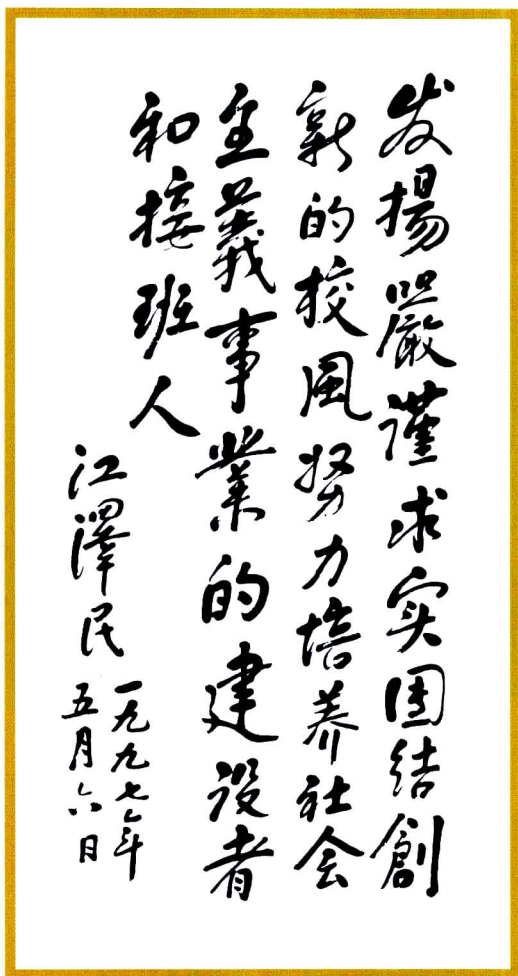 发揚嚴謹求实团结創
新的校風努力培养社会
主義事業的建设者
和接班人
江澤民
一九九七年
五月六日